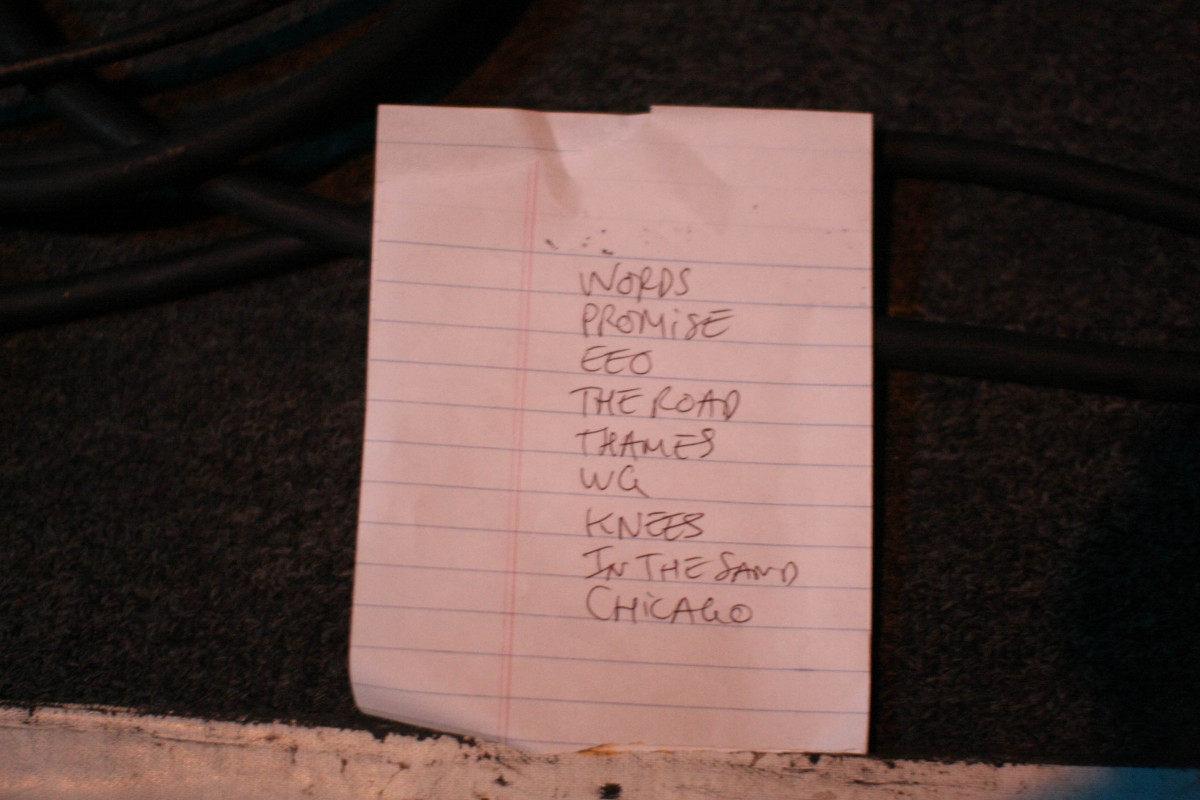 WORDS
PROMiSE
EEO
THE ROAD
THAMES
WG
KNEES
IN THE SAND
CHiCAGO